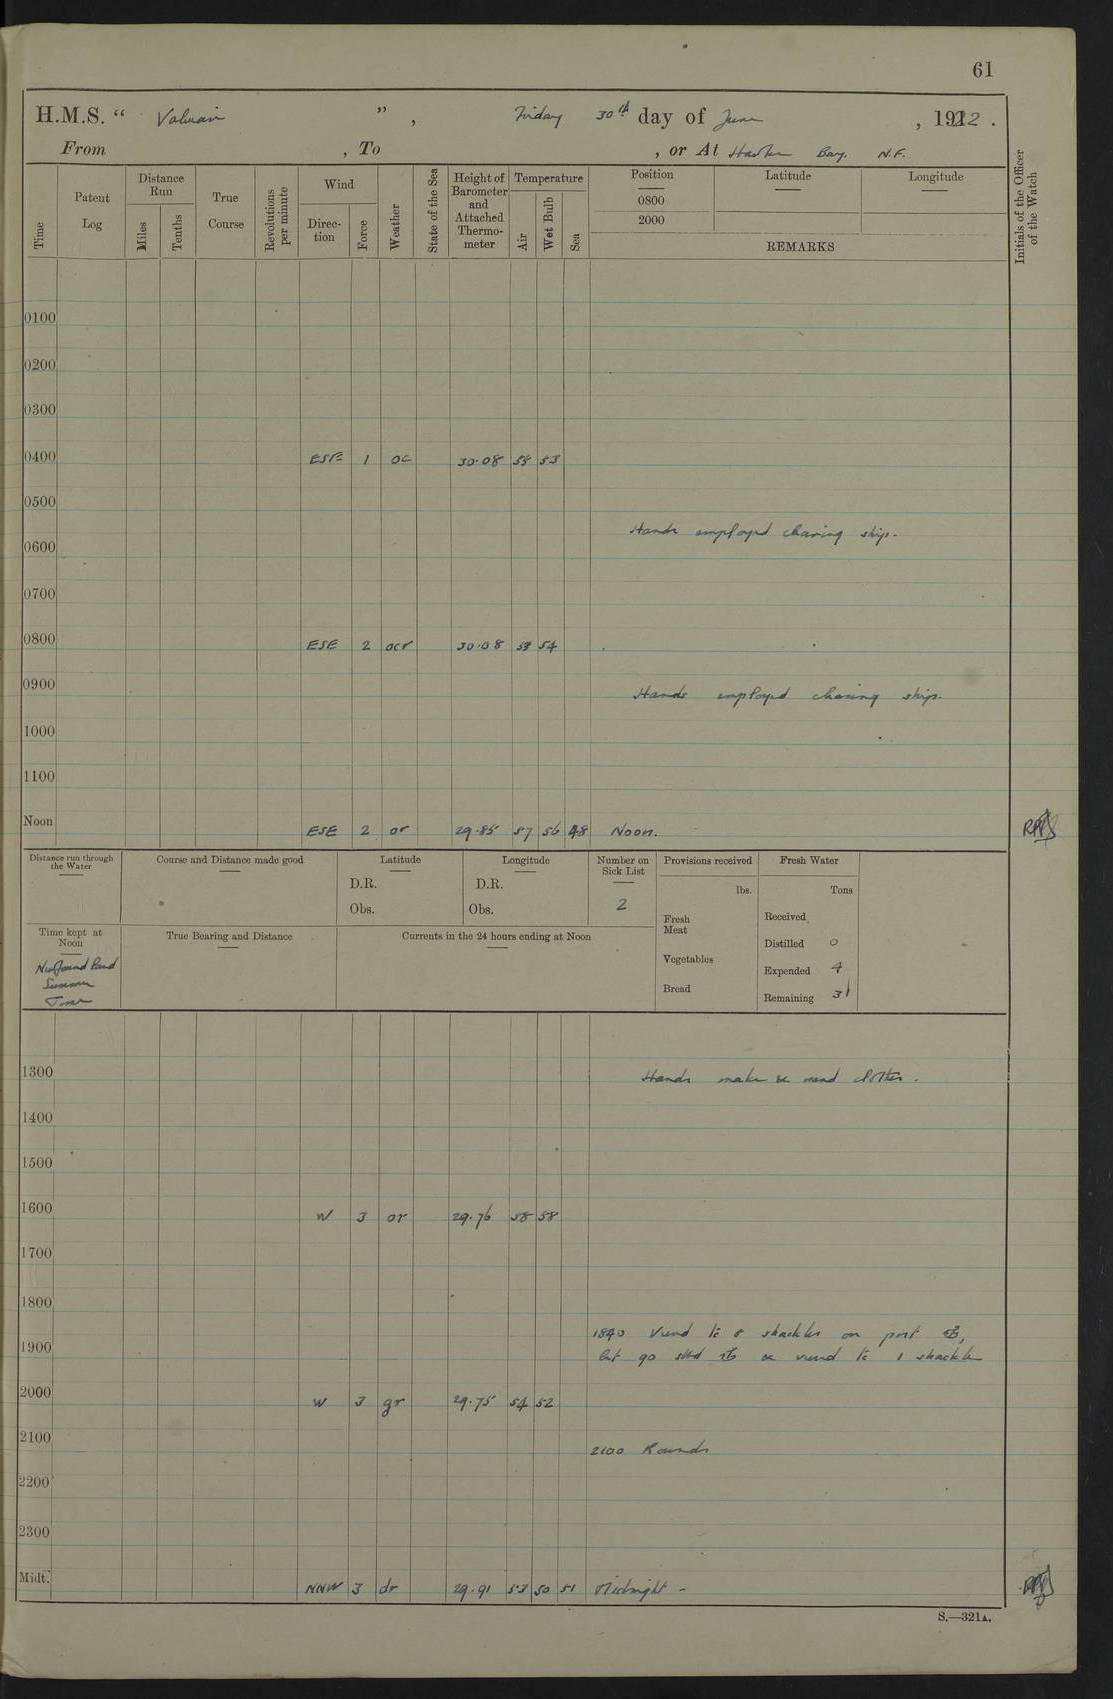 61
H.M.S. “ Valerian ” , Friday 30th day of June , 1922 .
From , To , or At Hawke Bay. N.F.
Time
Patent Log
Distance Run
Miles
Tenths
True Course
Revolutions per minute
Wind
Direction
Force
Weather
State of the Sea
Height of Barometer and Attached Thermometer
Temperature
Air
Wet Bulb
Sea
Position
0800
2000
Latitude
Longitude
REMARKS
Initials of the Officer of the Watch
0100
0200
0300
0400 ESE 1 oc 30.08 53
0500
Hands employed cleaning ship.
0600
0700
0800 ESE 2 ocr 30.08 54
0900 Hands employed cleaning ship.
1000
1100
Noon ESE 2 or 29.85 57 56 48 Noon.
Distance run through the Water
Course and Distance made good
Latitude
D.R.
Obs.
Longitude
D.R.
Obs.
Number on Sick List
2
Provisions received
lbs.
Fresh Meat
Vegetables
Bread
Fresh Water
Tons
Received
Distilled 0
Expended 4
Remaining 31
Time kept at Noon
Newfoundland
Summer
Time
True Bearing and Distance
Currents in the 24 hours ending at Noon
1300 Hands make & mend clothes.
1400
1500
1600 W 3 or 29.76 58 58
1700
1800
1840 Veered to 8 shackles on port
1900 let go stbd & veered to 1 shackle
2000 W 3 gr 29.75 54 52
2100 2100 Rounds
2200
2300
Midt. NNW 3 dr 29.91 53 50 51 Midnight -
S.—321A.